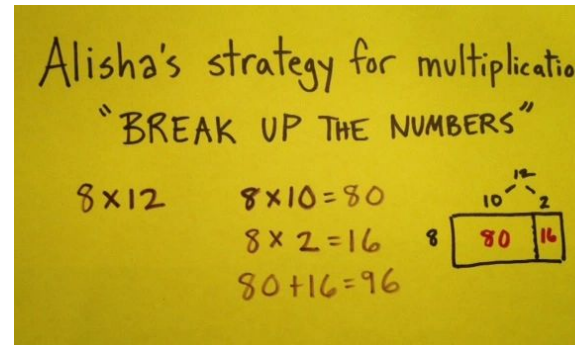 Alisha's strategy for multiplicatio
"BREAK UP THE NUMBERS"
8×12
8×10=80
8×2=16
80+16=96
12
10 2
8 80 16